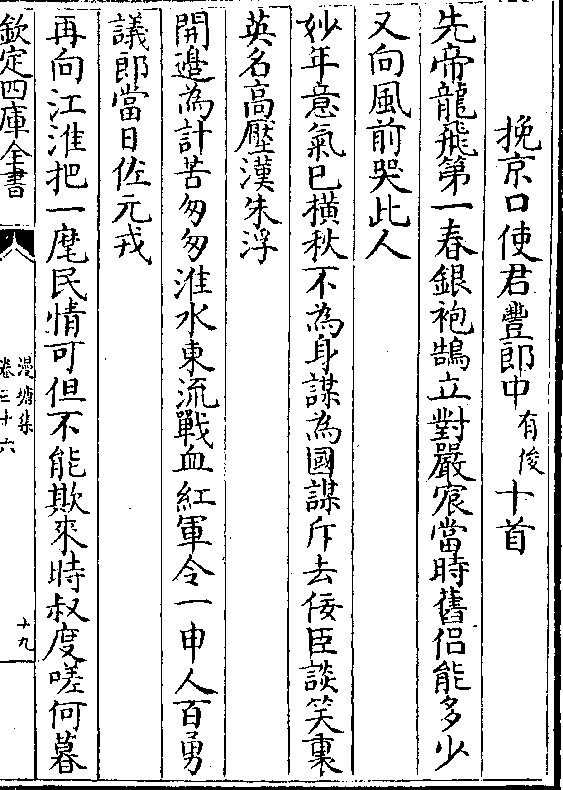 挽京口使君豐郎中有俊十首
先帝龍飛第一春銀袍鵠立對嚴宸當時舊侣能多少
又向風前哭此人
妙年意氣已横秋不為身謀為國謀斥去佞臣談笑裏
英名高壓漢朱浮
開邉為計苦匆匆淮水東流戰血紅軍令一申人百勇
議郎當日佐元戎
再向江淮把一麾民情可但不能欺來時叔度嗟何暮
欽定四庫全書
漫塘集
卷三十六
十九